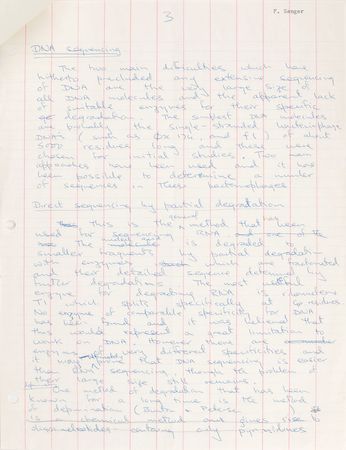 3
F. Sanger
DNA sequencing
The two main difficulties which have
hitherto precluded any extensive sequencing
of DNA are the very large size of
all DNA molecules and the apparent lack
of suitable enzymes for their specific
degradation. The simplest DNA molecules
are probably the single-stranded bacteriophage
DNAs (such as ØX 174 and f1) of about
5000 residues long and these were
chosen for initial studies. Two main
approaches have been used and it has
been possible to determine a number
of sequences in these bacteriophages
Direct sequencing by partial degradation
This is the general method that has been
used for sequencing RNA
The nucleic acid is degraded to
smaller fragments by partial degradation
with enzymes which are fractionated
and their detailed sequence determined by
further degradations. The most useful
enzyme for degrading RNA is ribonuclease
T1 which splits specifically at G residues
No enzyme of comparable specificity for DNA
has been found and it was believed that
this would represent a great limitation to
work on DNA. However there are
enzymes with very different specificities and
it was that DNA sequencing is easier
than sequencing, though the problem of
their large size still remains.
One method of degradation that has been
known for a long time is the method
of depurination (Burton & Petersen )
is a chemical method and gives rise to
oligonucleotides containing only pyrimidines